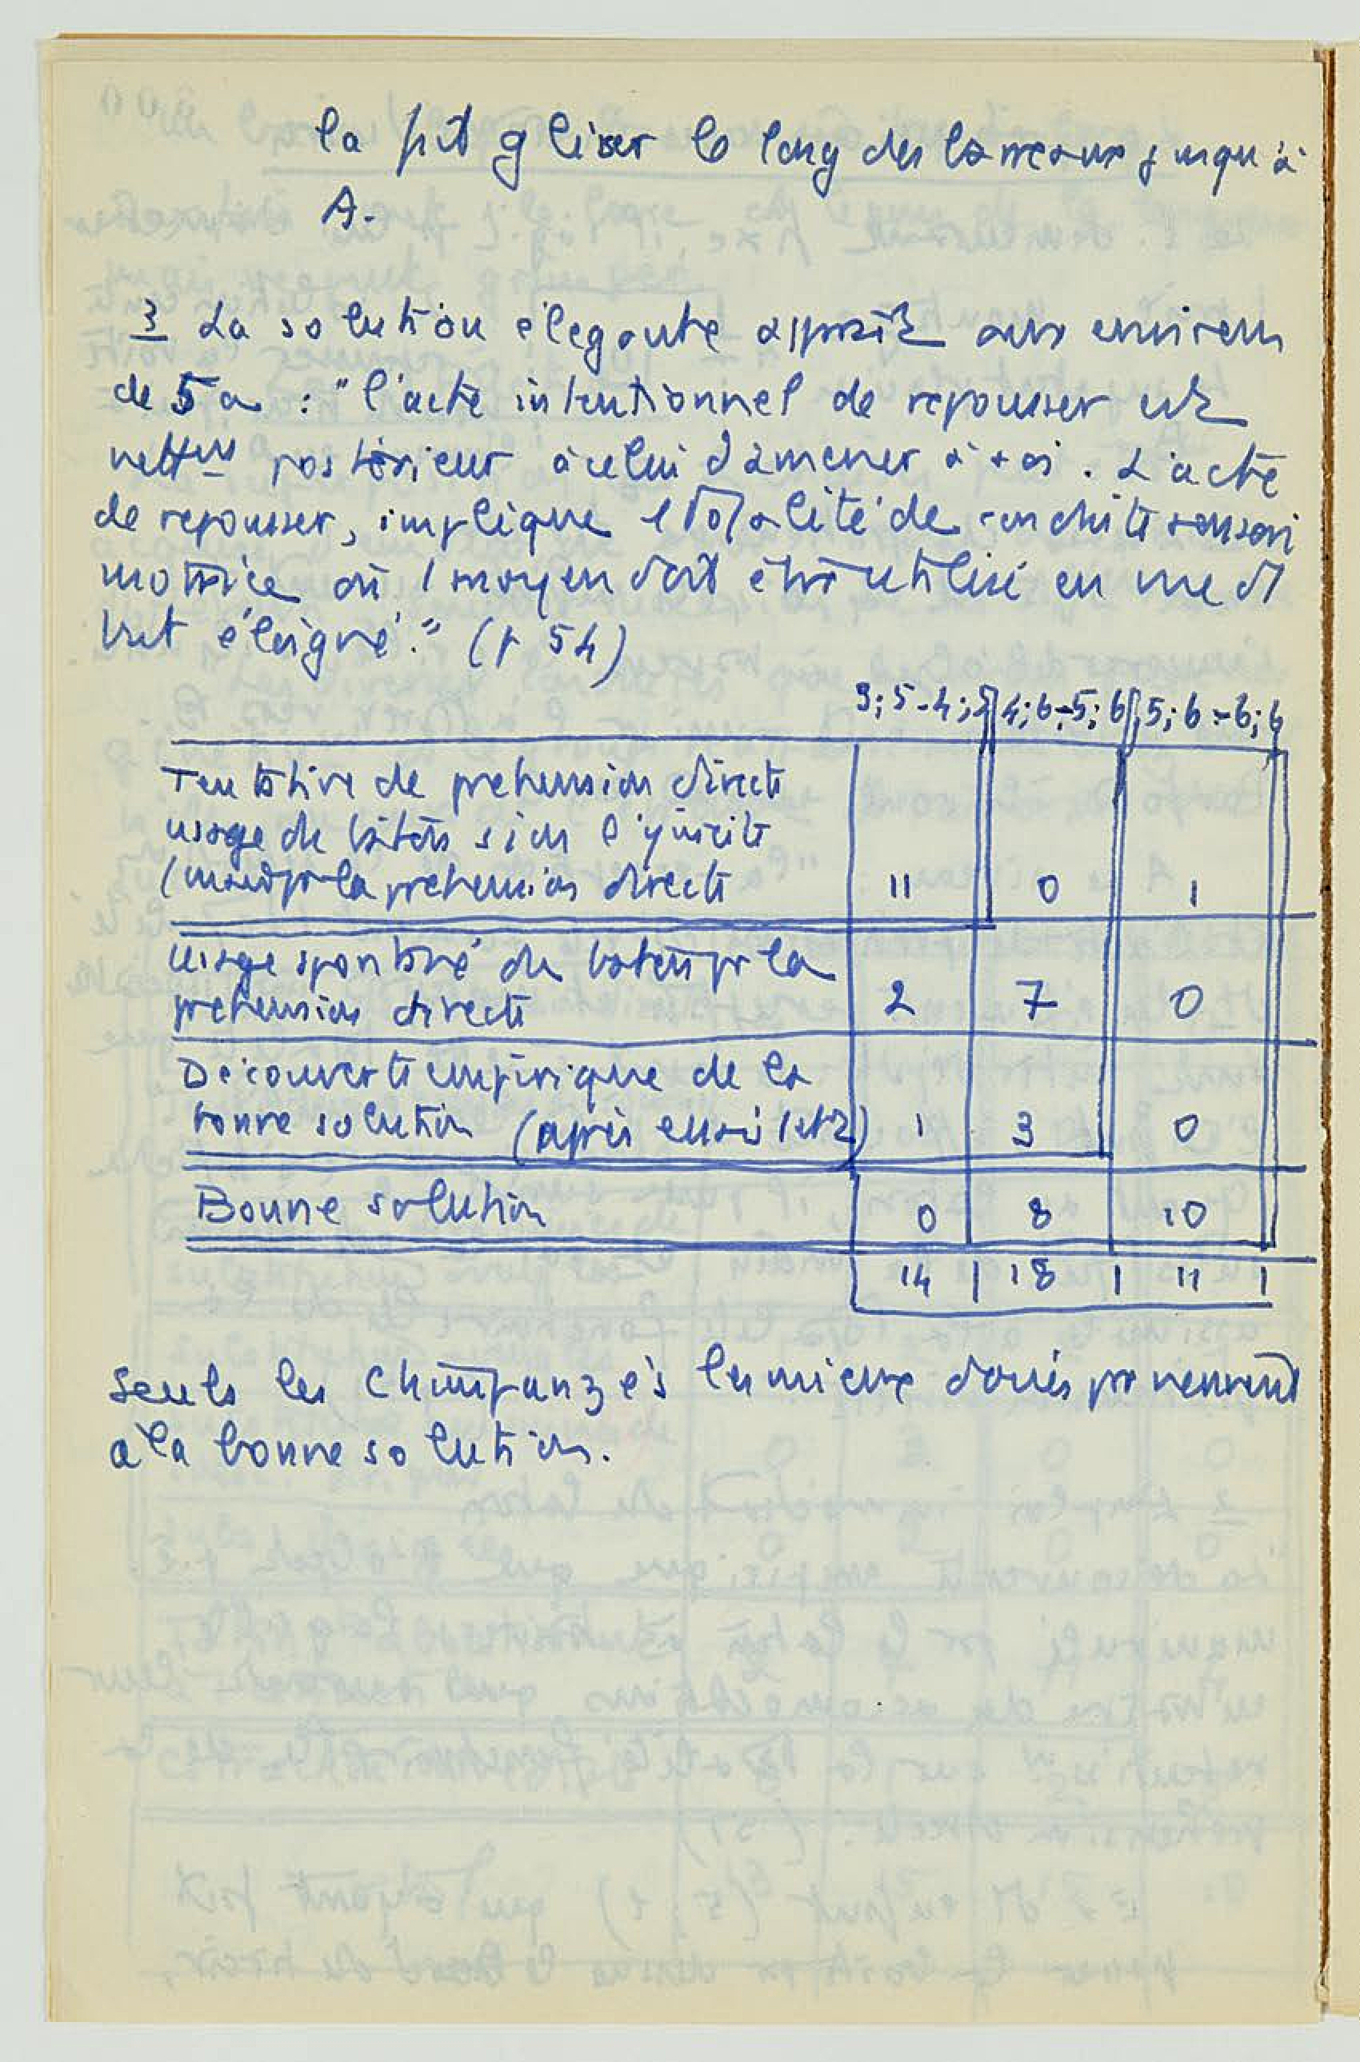 la fit glisser le long des barreaux jusqu'à
A.
3 La solution élégante apparaît aux environs
de 5 a : "l'acte intentionnel de repousser est
nettemt postérieur à celui d'amener à soi. L'acte
de repousser, implique totalité de conduite sensori
motrice où 1 moyen doit être utilisé en vue d1
but éloigné." (p 54)
3;5-4;5 4;6-5;6 5;6-6;6
Tentative de préhension directe
usage du bâton si on l'y incite
(mais pr la préhension directe 11 0 1
usage spontané du bâton pr la
préhension directe 2 7 0
Découverte empirique de la
bonne solution (après essais 1 et 2) 1 3 0
Bonne solution 0 8 10
14 18 11
Seuls les Chimpanzés les mieux doués parviennent
à la bonne solution.